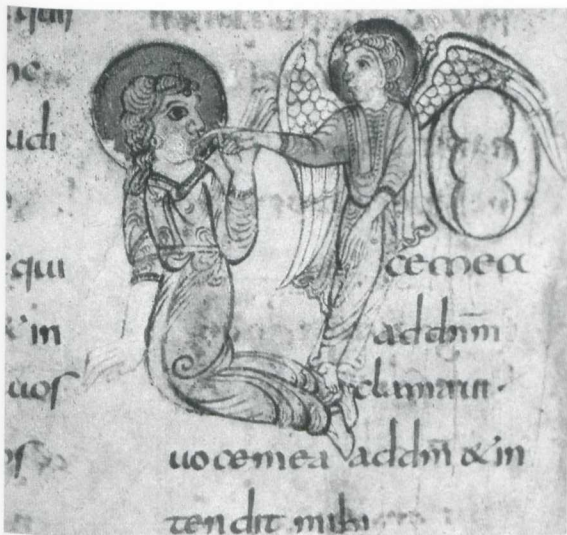 qui
ne
udi
qui
& in
uos
os
VO
cemea
addn̄m
clamaui·
uocemea addm̄ & in
tendit mihi